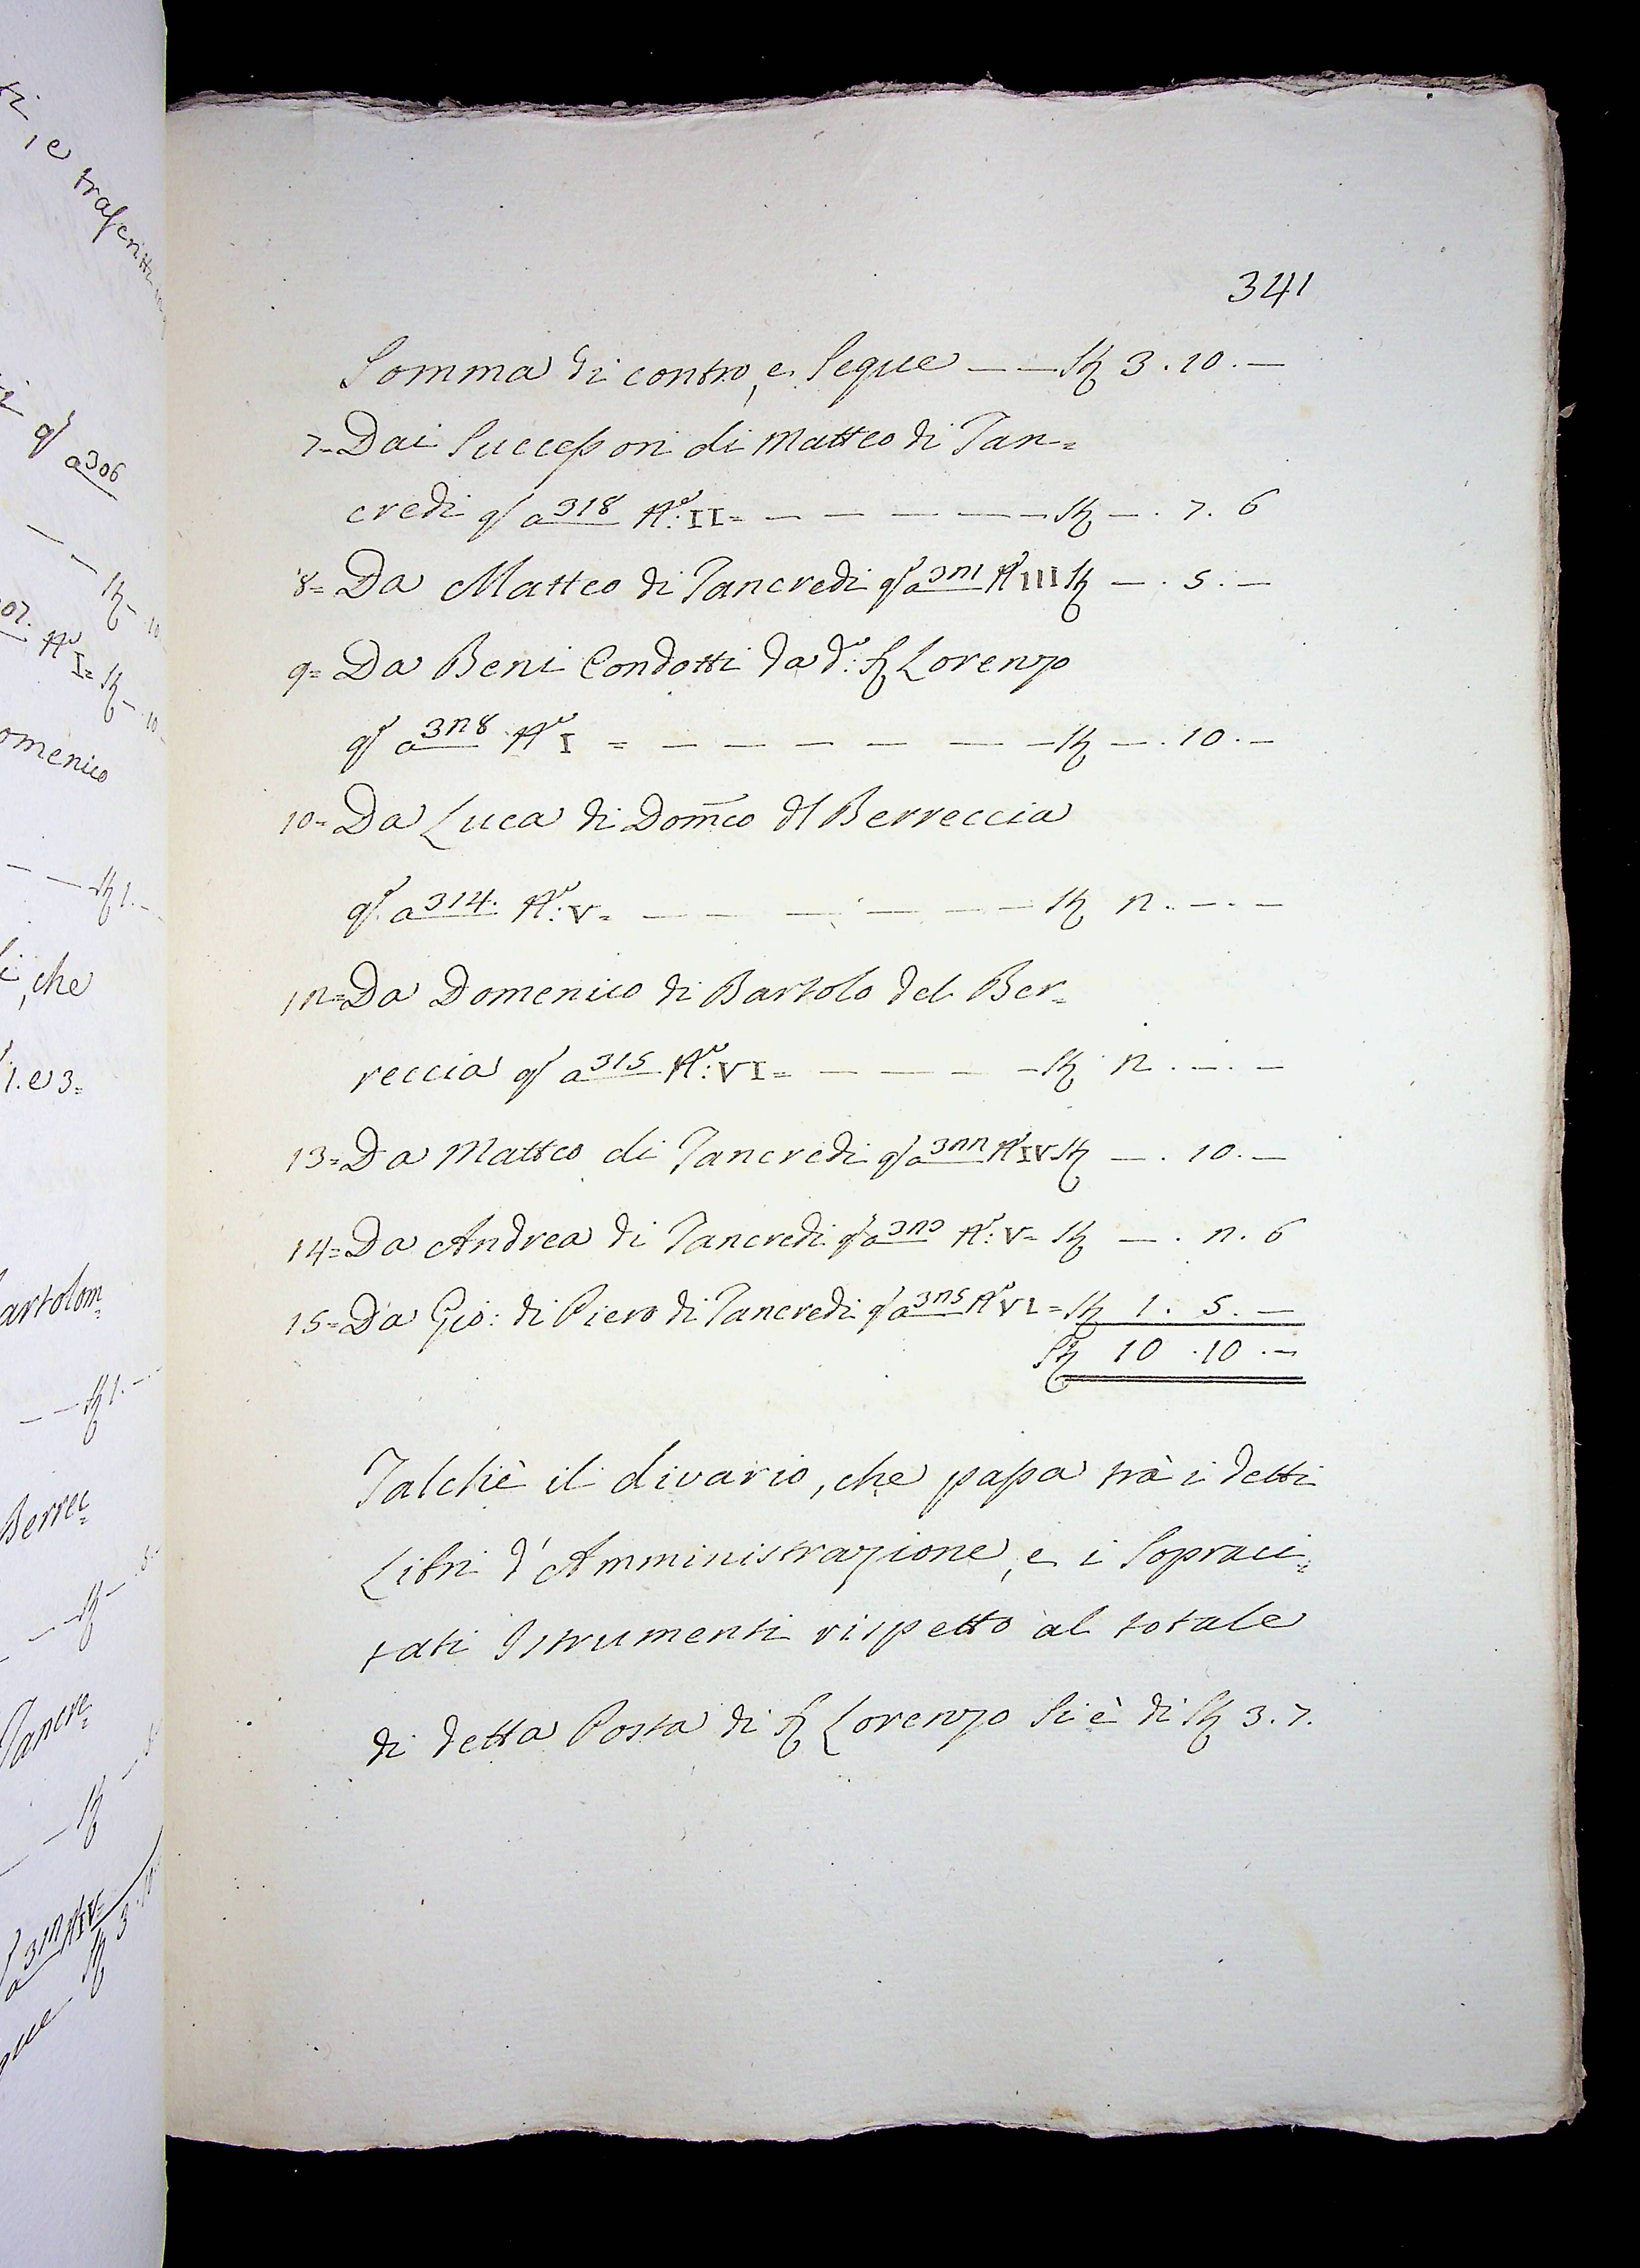 341
Somma di contro, e Segue — — S.ta 3 . 10 . —
7= Dai Successori di Matteo di Tan=
credi qs a 318 No: II= — — — — — — S.ta — . 7 . 6
8= Da Matteo di Tancredi qs a 321 No III S.ta — . 5 . —
9= Da Beni Condotti da do: S. Lorenzo
qs a 328 No I = — — — — — — S.ta — . 10 . —
10= Da Luca di Domco dl Berreccia
qs a 314. No: V= — — — — — — S.ta 2 . — . —
12= Da Domenico di Bartolo del Ber=
reccia qs a 315 No: VI= — — — — S.ta 2 . — . —
13= Da Matteo di Tancredi qs a 322 No IV S.ta — . 10 . —
14= Da Andrea di Tancredi qs a 323 No: V= S.ta — . 2 . 6
15= Da Gio: di Piero di Tancredi qs a 325 No VI= S.ta 1 . 5 . —
S.ta 10 . 10 . —
Talchè il divario, che passa trà i detti
Libri d'Amministrazione, e i Sopraci=
tati Istrumenti rispetto al totale
di detta Posta di S. Lorenzo Si è di S.ta 3 . 7 .
ti, e trascritti
qs a 306
— — S.ta — 10
07. No I= S.ta — 10
omenico
— — S.ta 1. —
i, che
1. e 3=
artolom=
— — S.ta 1. —
Berrec=
— — S.ta —
Tancre=
— S.ta
a 312 No IV=
gue S.ta 3